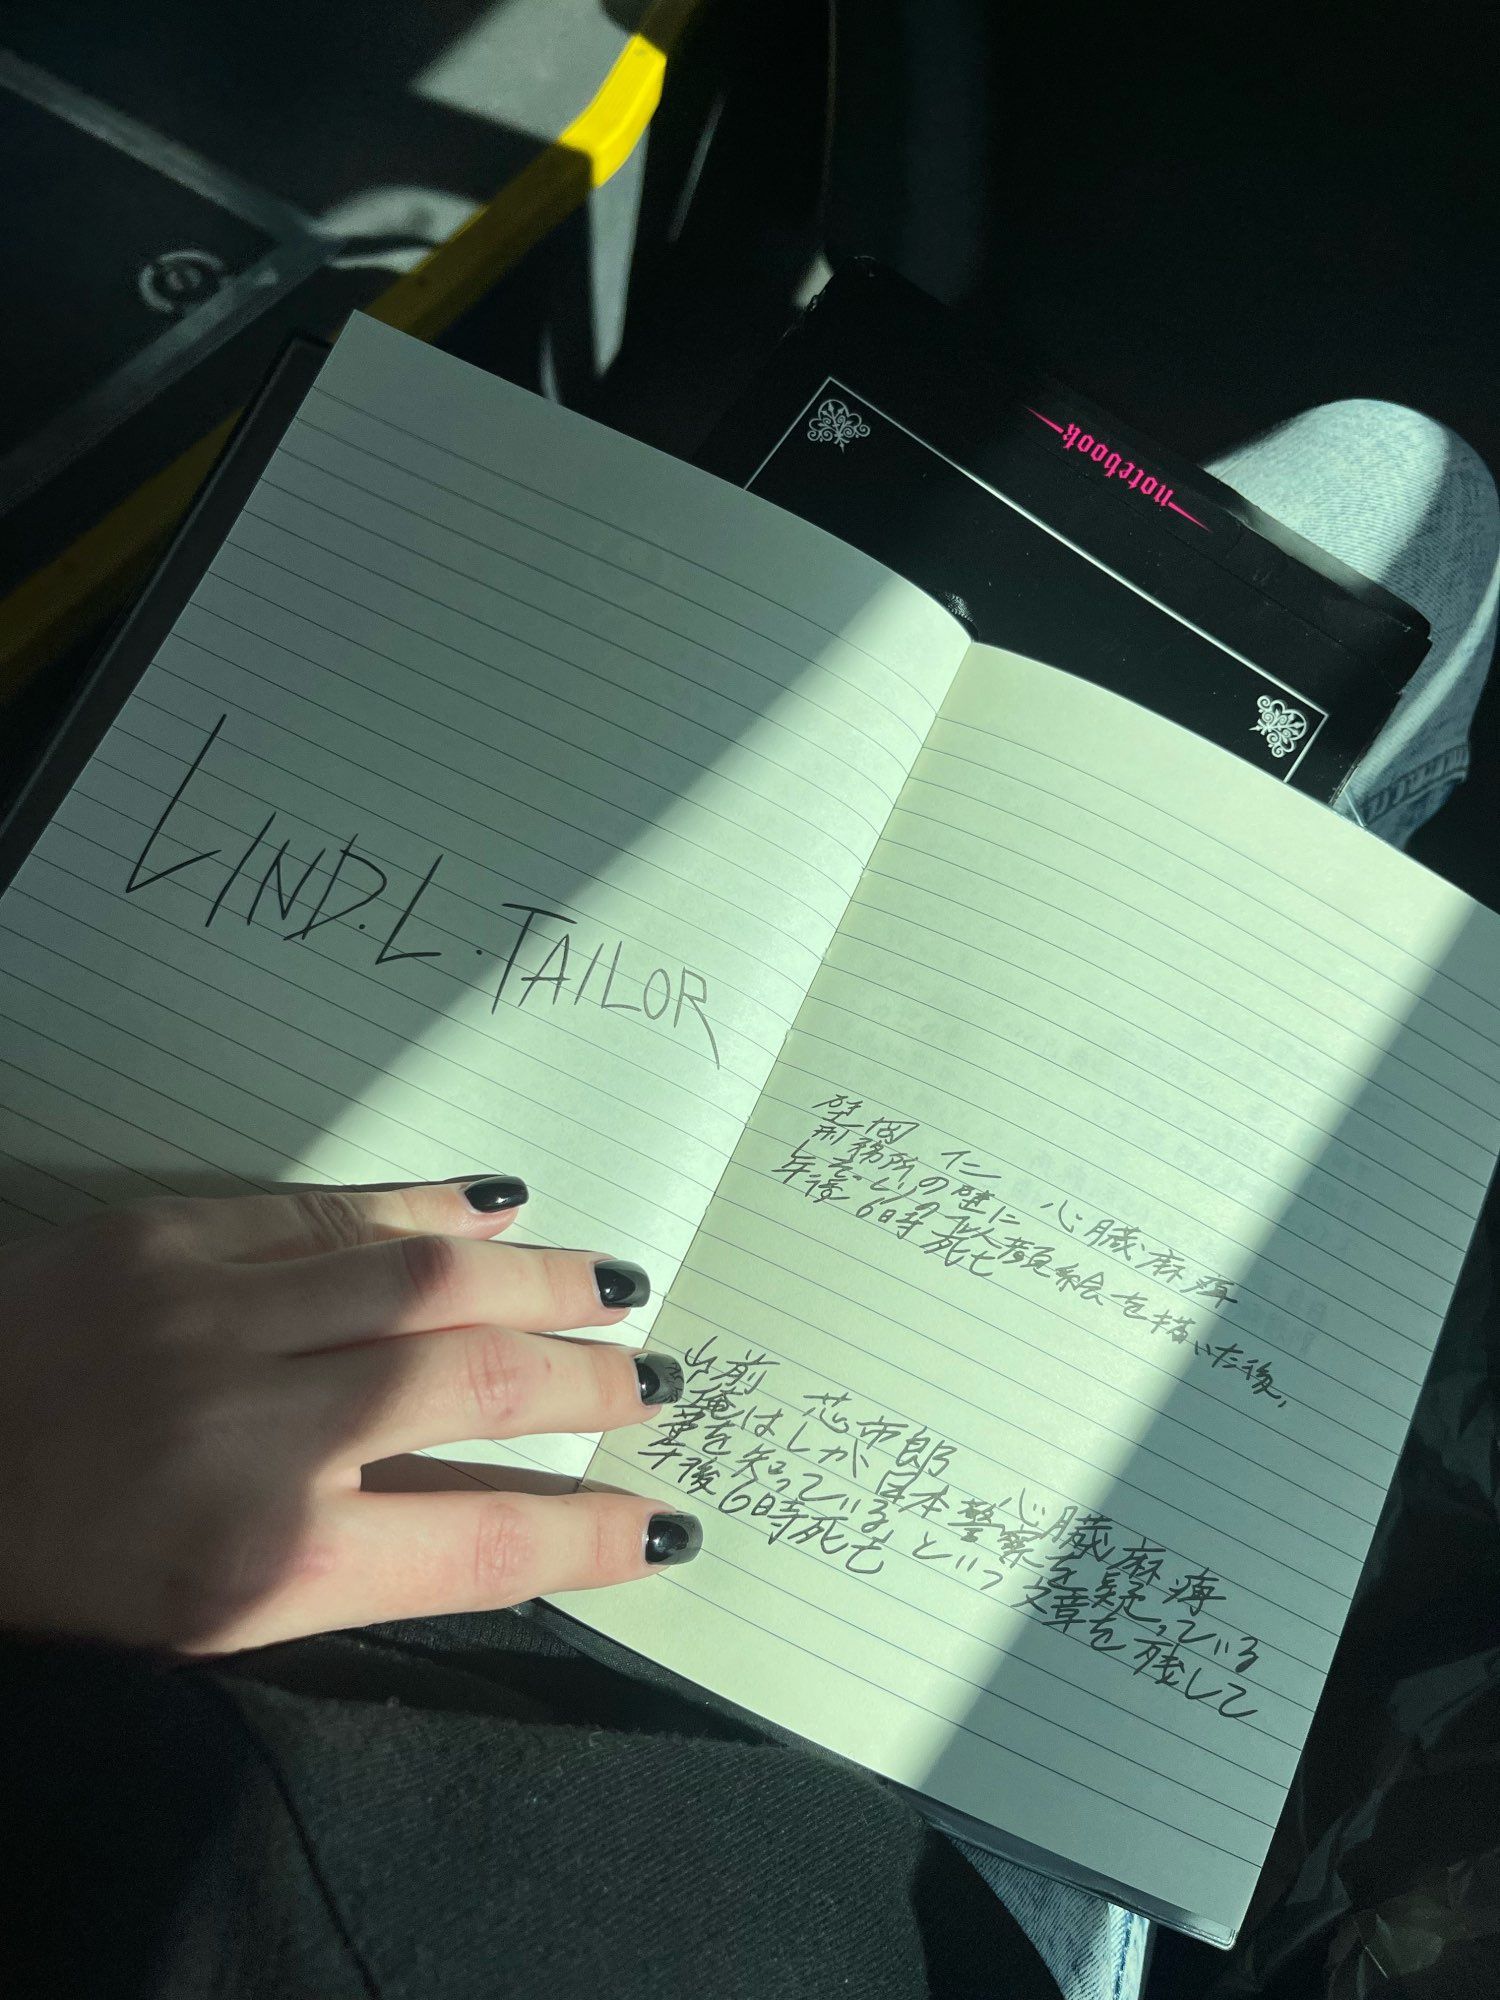 notebook
LIND.L.TAILOR
岡 仁 心臓麻痺
刑務所の壁に
似顔絵を描いた後、
午後6時死亡
山前 芯市郎 心臓麻痺
俺はしか 日本警察を疑っている
事を知っている という文章を残して
午後6時死亡